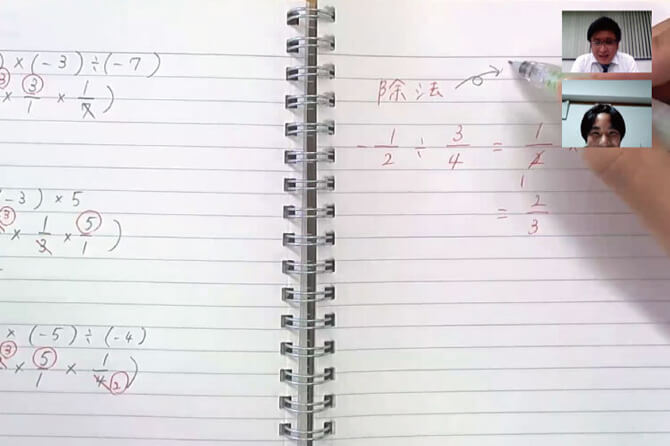 ) × (-3) ÷ (-7)
③ × ③/1 × 1/7 )
(-3) × 5
③ × 1/3 × ⑤/1 )
× (-5) ÷ (-4)
③ × ⑤/1 × 1/4 ② )
除法
- 1/2 ÷ 3/4 = 1/2 ×
1
= 2/3